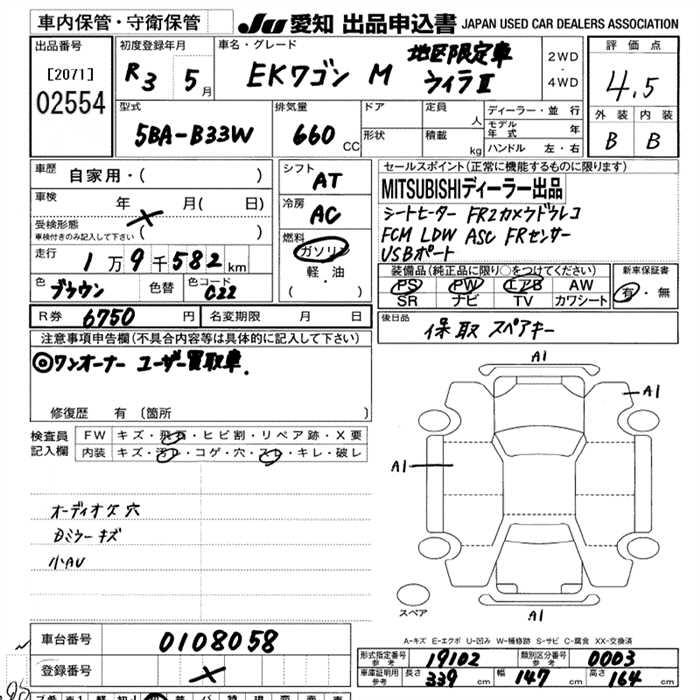 車内保管・守衛保管 JU 愛知 出品申込書 JAPAN USED CAR DEALERS ASSOCIATION
出品番号
[2071]
02554
初度登録年月
R3 5月
車名・グレード
EKワゴン M 地区限定車
ライラⅡ
2WD
・
4WD
評価点
4.5
外装 内装
B B
型式
5BA-B33W
排気量
660 CC
ドア
形状
定員 人
積載 kg
ディーラー・並行
モデル年式 年
ハンドル 左・右
車歴
自家用・( )
車検 年 月( 日)
受検形態
車検付きのみ記入して下さい ( )
走行 1万9千582km
色 ブラウン 色替 色コード C22
シフト
AT
冷房
AC
燃料
ガソリン
軽・油
( )
セールスポイント(正常に機能するものに限ります)
MITSUBISHIディーラー出品
シートヒーター FR2カメラドラレコ
FCM LDW ASC FRセンサー
USBポート
装備品(純正品に限り○をつけてください)
PS PW エアB AW
SR ナビ TV カワシート
新車保証書
有・無
R券 6750 円 名変期限 月 日
後日品
保 取 スペアキー
注意事項申告欄(不具合内容等は具体的に記入して下さい)
◎ワンオーナー ユーザー買取車.
修復歴 有 〔箇所 〕
検査員
記入欄
FW キズ・飛石・ヒビ割・リペア跡・X要
内装 キズ・汚レ・コゲ・穴・スレ・キレ・破レ
オーディオ穴
Dミラーキズ
小AU
A1
A1
A1
A1
スペア
A-キズ E-エクボ U-凹み W-補修跡 S-サビ C-腐食 XX-交換済
車台番号 0108058
登録番号
形式指定番号
参考
19102
類別区分番号
参考
0003
車庫証明用
参考
長さ 339 cm 幅 147 cm 高さ 164 cm